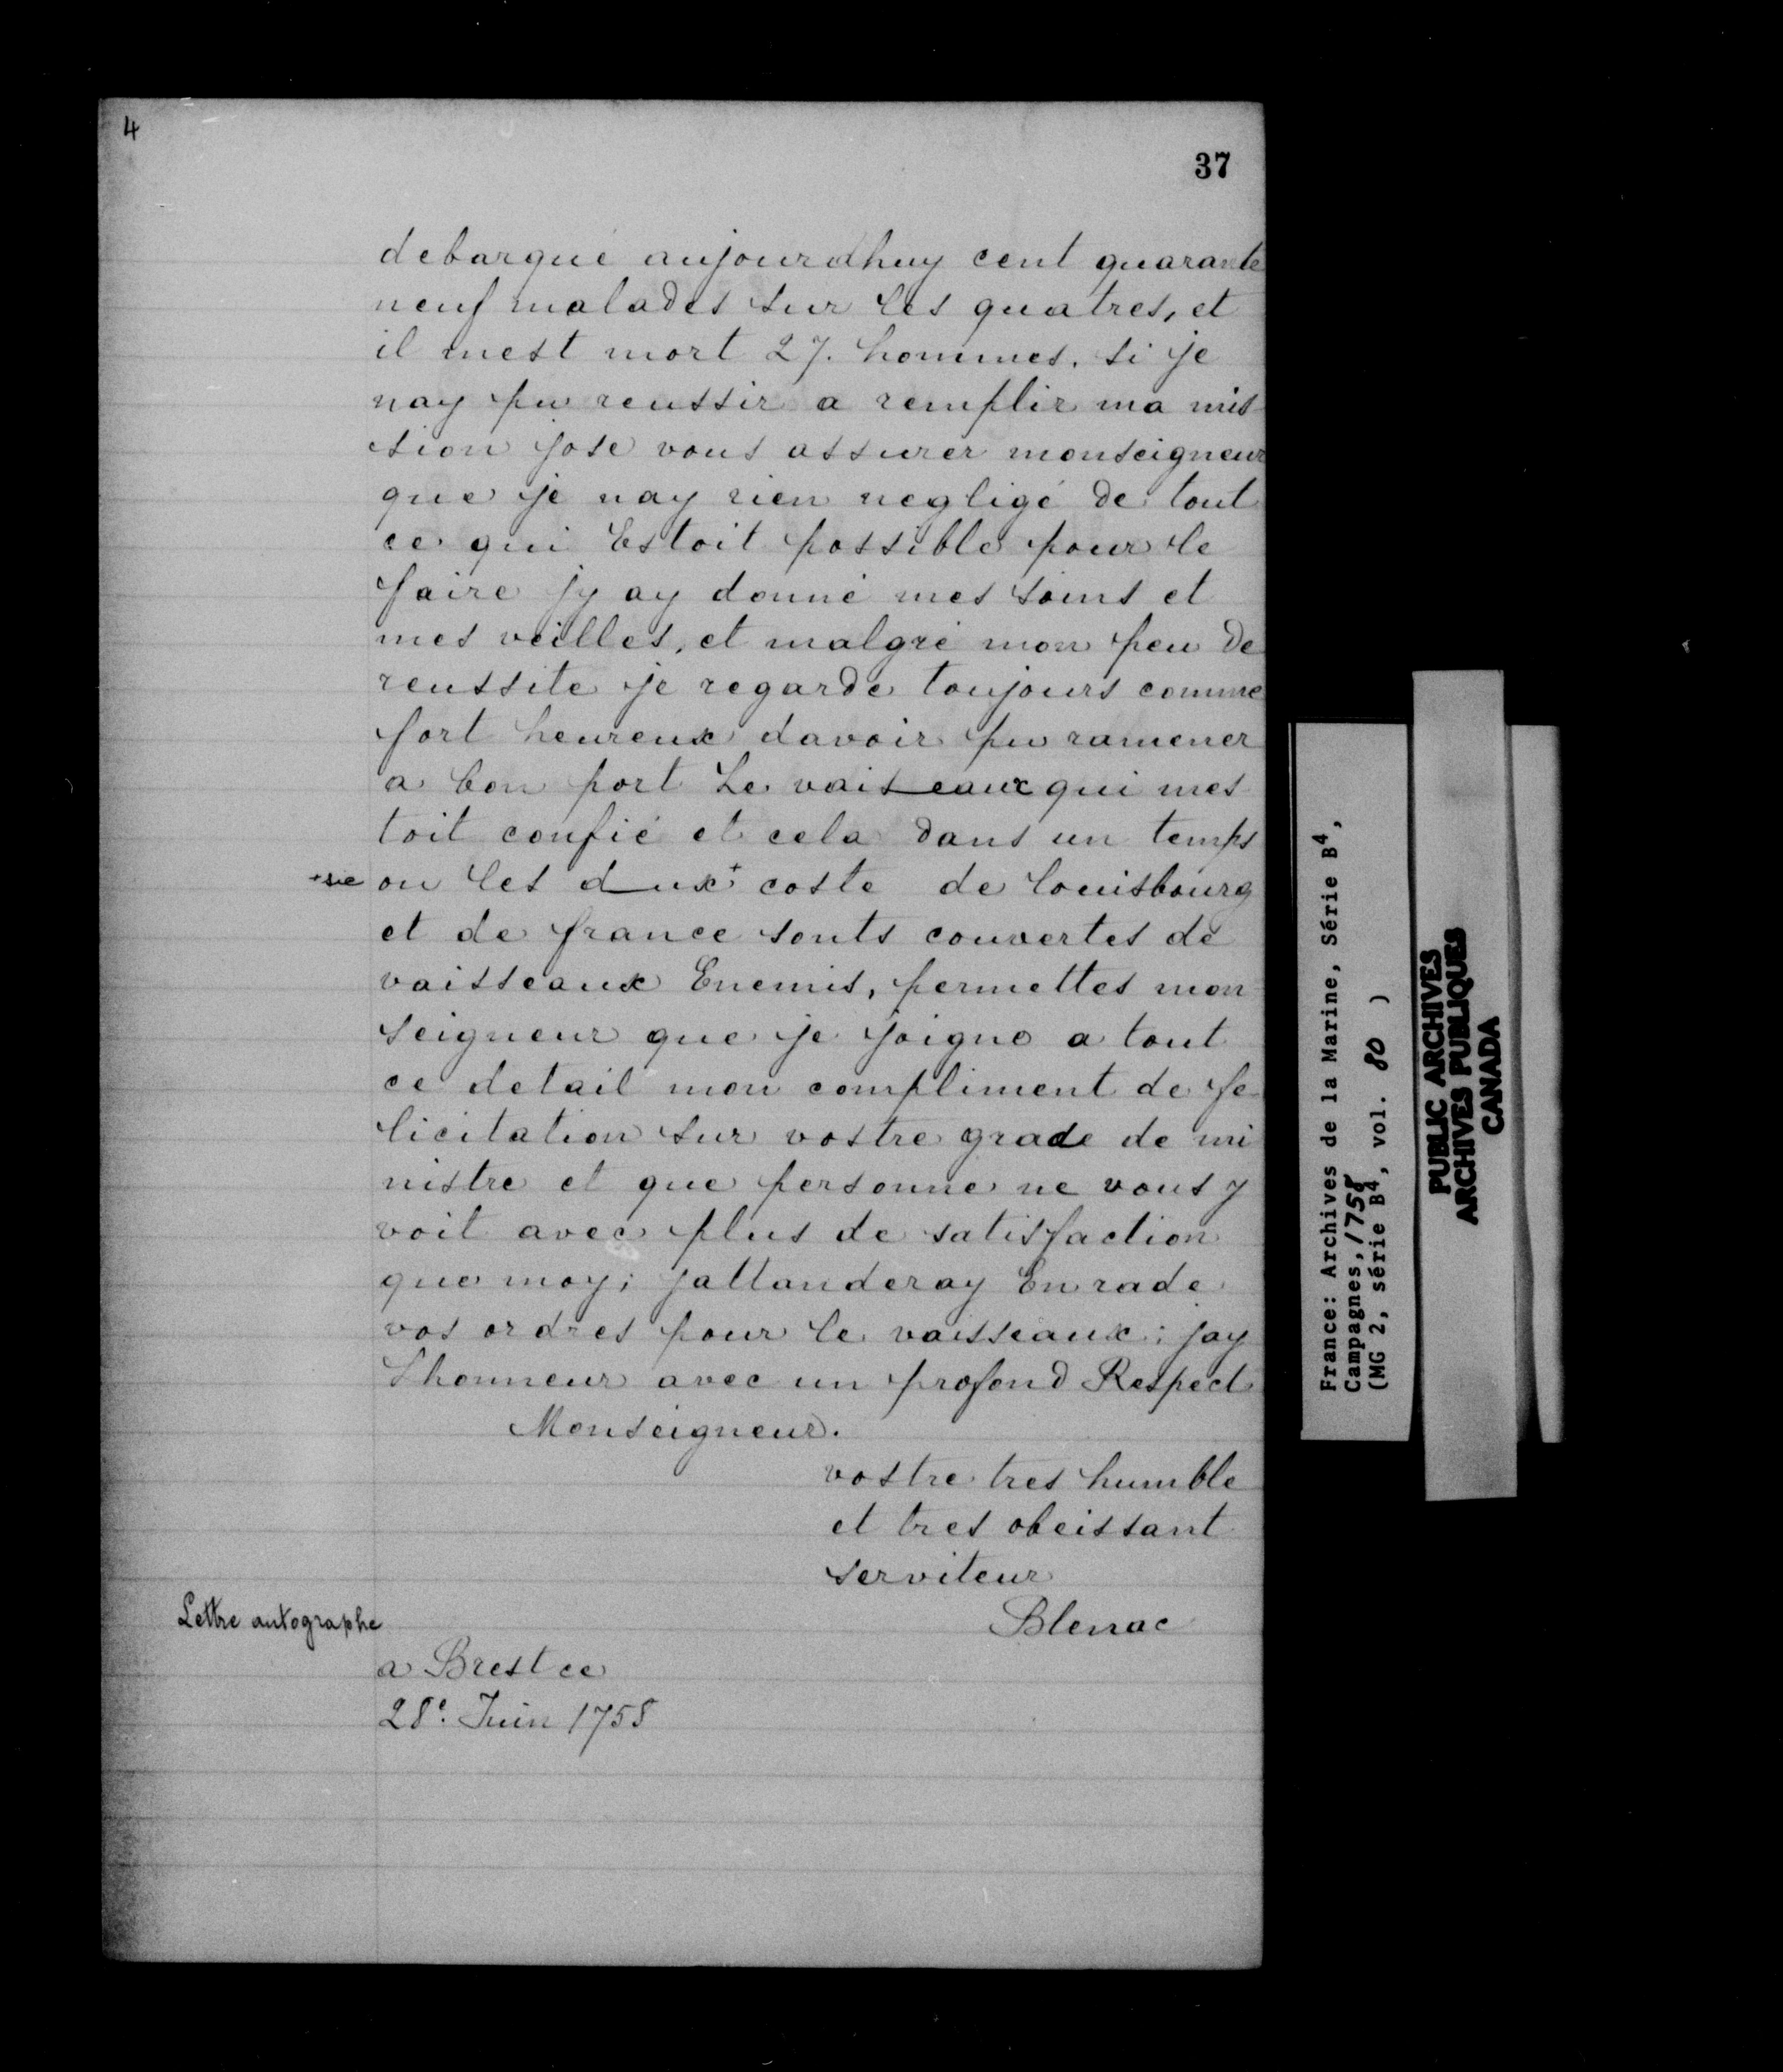 4
37
debarqué aujourdhuy cent quarante
neuf malades sur les quatres, et
il mest mort 27. hommes. si je
nay pu reussir a remplir ma mis
sion jose vous assurer monseigneur
que je nay rien negligé de tout
ce qui Estoit possible pour le
faire jy ay donné mes soins et
mes veilles, et malgré mon peu de
reussite je regarde toujours comme
fort heureux davoir pu ramener
a bon port Le vaisseaux qui mes
toit confié et cela dans un temps
ou les dux+ coste de louisbourg
et de france sonts couvertes de
vaisseaux Enemis, permettes mon
seigneur que je joigne a tout
ce detail mon compliment de fe
licitation sur vostre grade de mi
nistre et que personne ne vous y
voit avec plus de satisfaction
que moy; jattanderay En rade
vos ordres pour le vaisseaux; jay
Lhonneur avec un profond Respect
Monseigneur.
vostre tres humble
et tres obeissant
serviteur
Blenac
Lettre autographe
a Brest ce
28e. Juin 1758
France: Archives de la Marine, Série B4,
Campagnes, 1758
(MG 2, série B4, vol. 80 )
PUBLIC ARCHIVES
ARCHIVES PUBLIQUES
CANADA